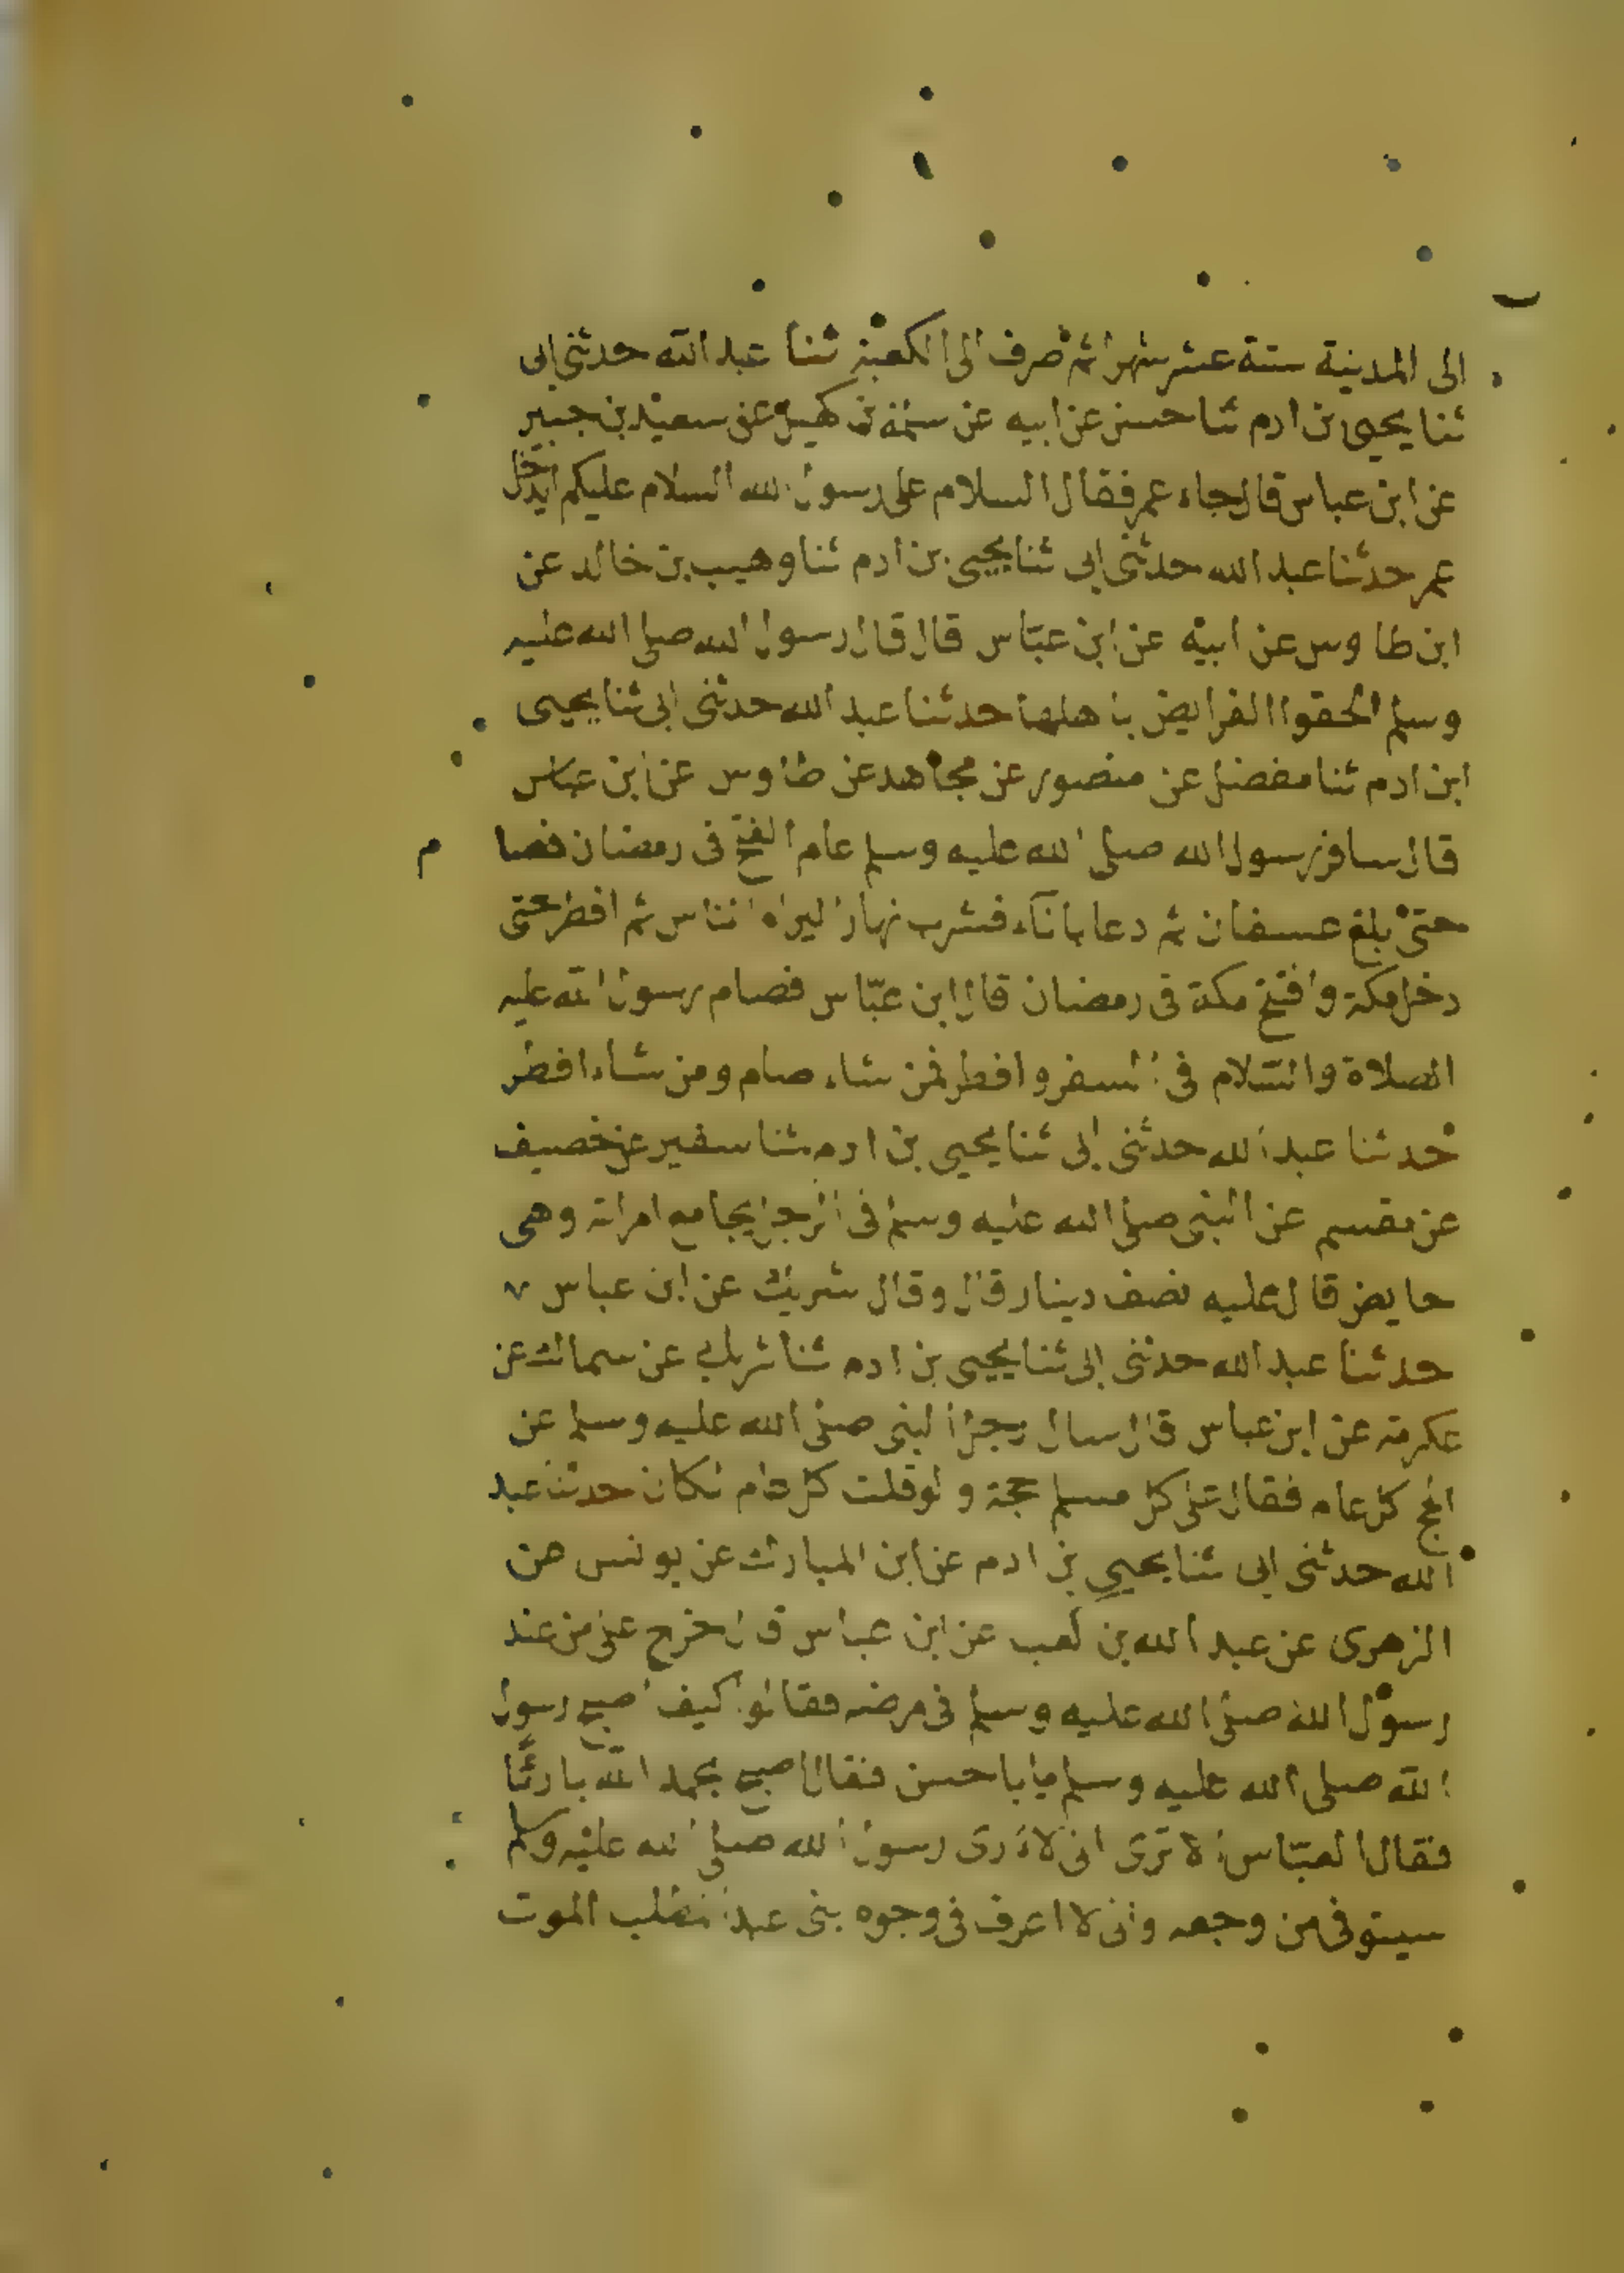 الى المدينة ستة عشر شهرا ثم صرف الى الكعبة ثنا عبد الله حدثني ابى
ثنا يحيى بن ادم ثنا حسن عن ابيه عن سلمة بن كهيل عن سعيد بن جبير
عن ابن عباس قال جاء عمر فقال السلام على رسول الله السلام عليكم ايدخل
عمر حدثنا عبد الله حدثني ابى ثنا يحيى بن ادم ثنا وهيب بن خالد عن
ابن طاوس عن ابيه عن ابن عباس قال قال رسول الله صلى الله عليه
وسلم الحقوا الفرايض باهلها حدثنا عبد الله حدثني ابى ثنا يحيى
ابن ادم ثنا مفضل عن منصور عن مجاهد عن طاوس عن ابن عباس
قال سافر رسول الله صلى الله عليه وسلم عام الفتح فى رمضان فصام
حتى بلغ عسفان ثم دعا باناء فشرب نهارا ليراه الناس ثم افطر حتى
دخل مكة وافتتح مكة فى رمضان قال ابن عباس فصام رسول الله عليه
الصلاة والسلام فى السفر وافطر فمن شاء صام ومن شاء افطر
حدثنا عبد الله حدثني ابى ثنا يحيى بن ادم ثنا سفين عن خصيف
عن مقسم عن النبى صلى الله عليه وسلم فى الرجل يجامع امراته وهى
حايض قال عليه نصف دينار قال وقال شريك عن ابن عباس
حدثنا عبد الله حدثني ابى ثنا يحيى بن ادم ثنا شريك عن سماك عن
عكرمة عن ابن عباس قال سال رجل النبى صلى الله عليه وسلم عن
الحج كل عام فقال على كل مسلم حجة ولو قلت كل عام لكان حدثنا عبد
الله حدثني ابى ثنا يحيى بن ادم عن ابن المبارك عن يونس عن
الزهرى عن عبد الله بن كعب عن ابن عباس قال خرج على من عند
رسول الله صلى الله عليه وسلم فى مرضه فقالوا كيف اصبح رسول
الله صلى الله عليه وسلم يا ابا حسن فقال اصبح بحمد الله بارئا
فقال العباس الا ترى انى لا ارى رسول الله صلى الله عليه وسلم
سيتوفى من وجعه وانى لا اعرف فى وجوه بنى عبد المطلب الموت